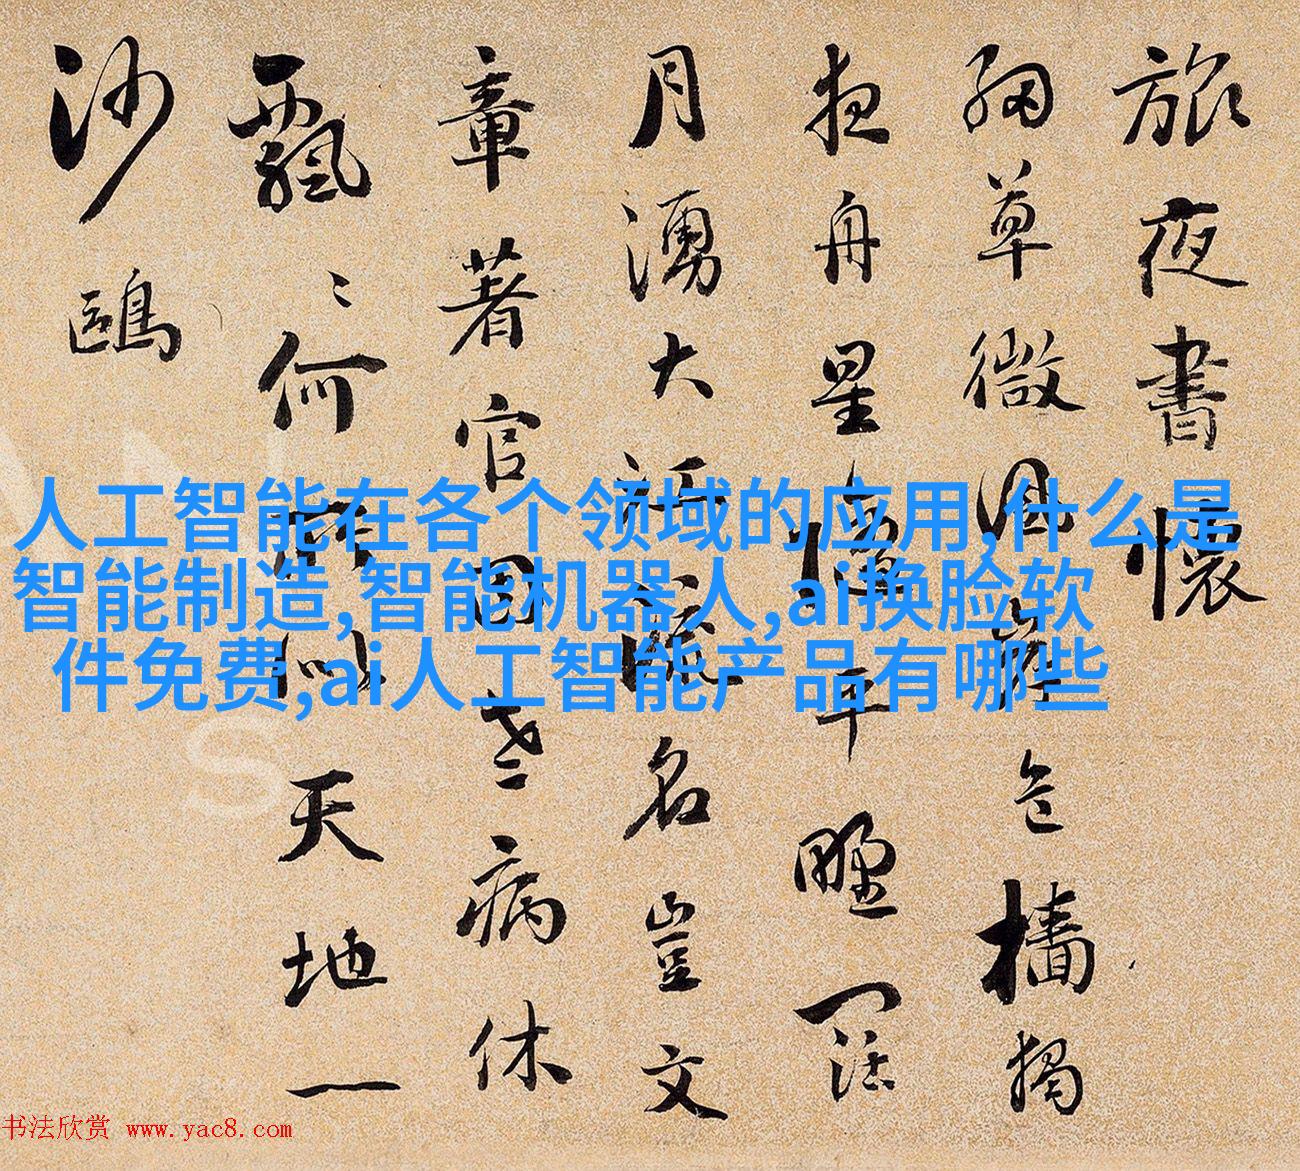 旅夜書懷
細草微風岸危檣獨
夜舟星平野闊
月湧大江流名豈文
章著官因老病休
飄〻何所似天地一
沙鷗
人工智能在各个领域的应用,什么是
智能制造,智能机器人,ai换脸软
件免费,ai人工智能产品有哪些
书法欣赏 www.yac8.com